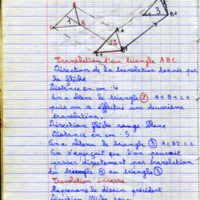 Translation d'un triangle A B C
Direction de la translation donnée par
la flèche
Distance en cm : 4
On a obtenu le triangle 2 A1 B1 C1
puis on a effectué une deuxième
translation.
Direction flèche rouge
Distance en cm : 5
On a obtenu le triangle 3 A2 B2 C2
On s'aperçoit que l'on pouvait
passer directement par translation
du triangle au triangle
Translation inverse
Reprenons le dessin précédent
Direction flèche rouge